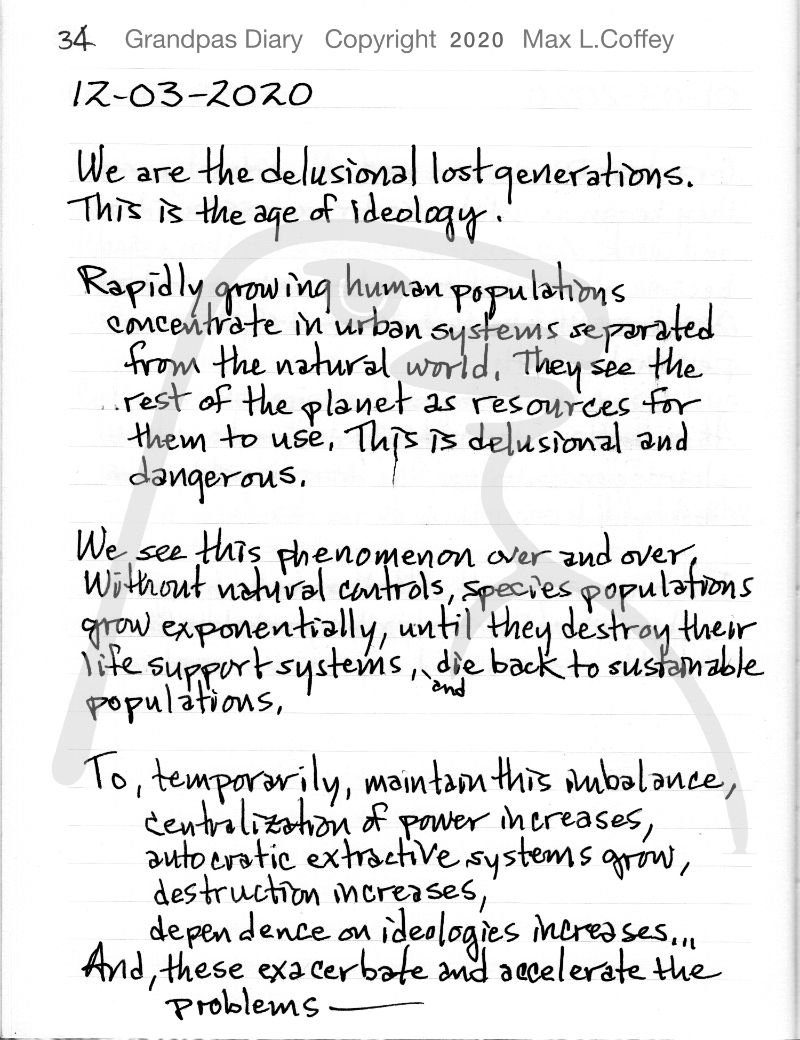 34 Grandpas Diary Copyright 2020 Max L.Coffey
12-03-2020
We are the delusional lost generations.
This is the age of ideology.
Rapidly growing human populations
concentrate in urban systems separated
from the natural world. They see the
..rest of the planet as resources for
them to use. This is delusional and
dangerous.
We see this phenomenon over and over.
Without natural controls, species populations
grow exponentially, until they destroy their
life support systems, and die back to sustainable
populations.
To, temporarily, maintain this imbalance,
centralization of power increases,
autocratic extractive systems grow,
destruction increases,
dependence on ideologies increases...
And, these exacerbate and accelerate the
problems —